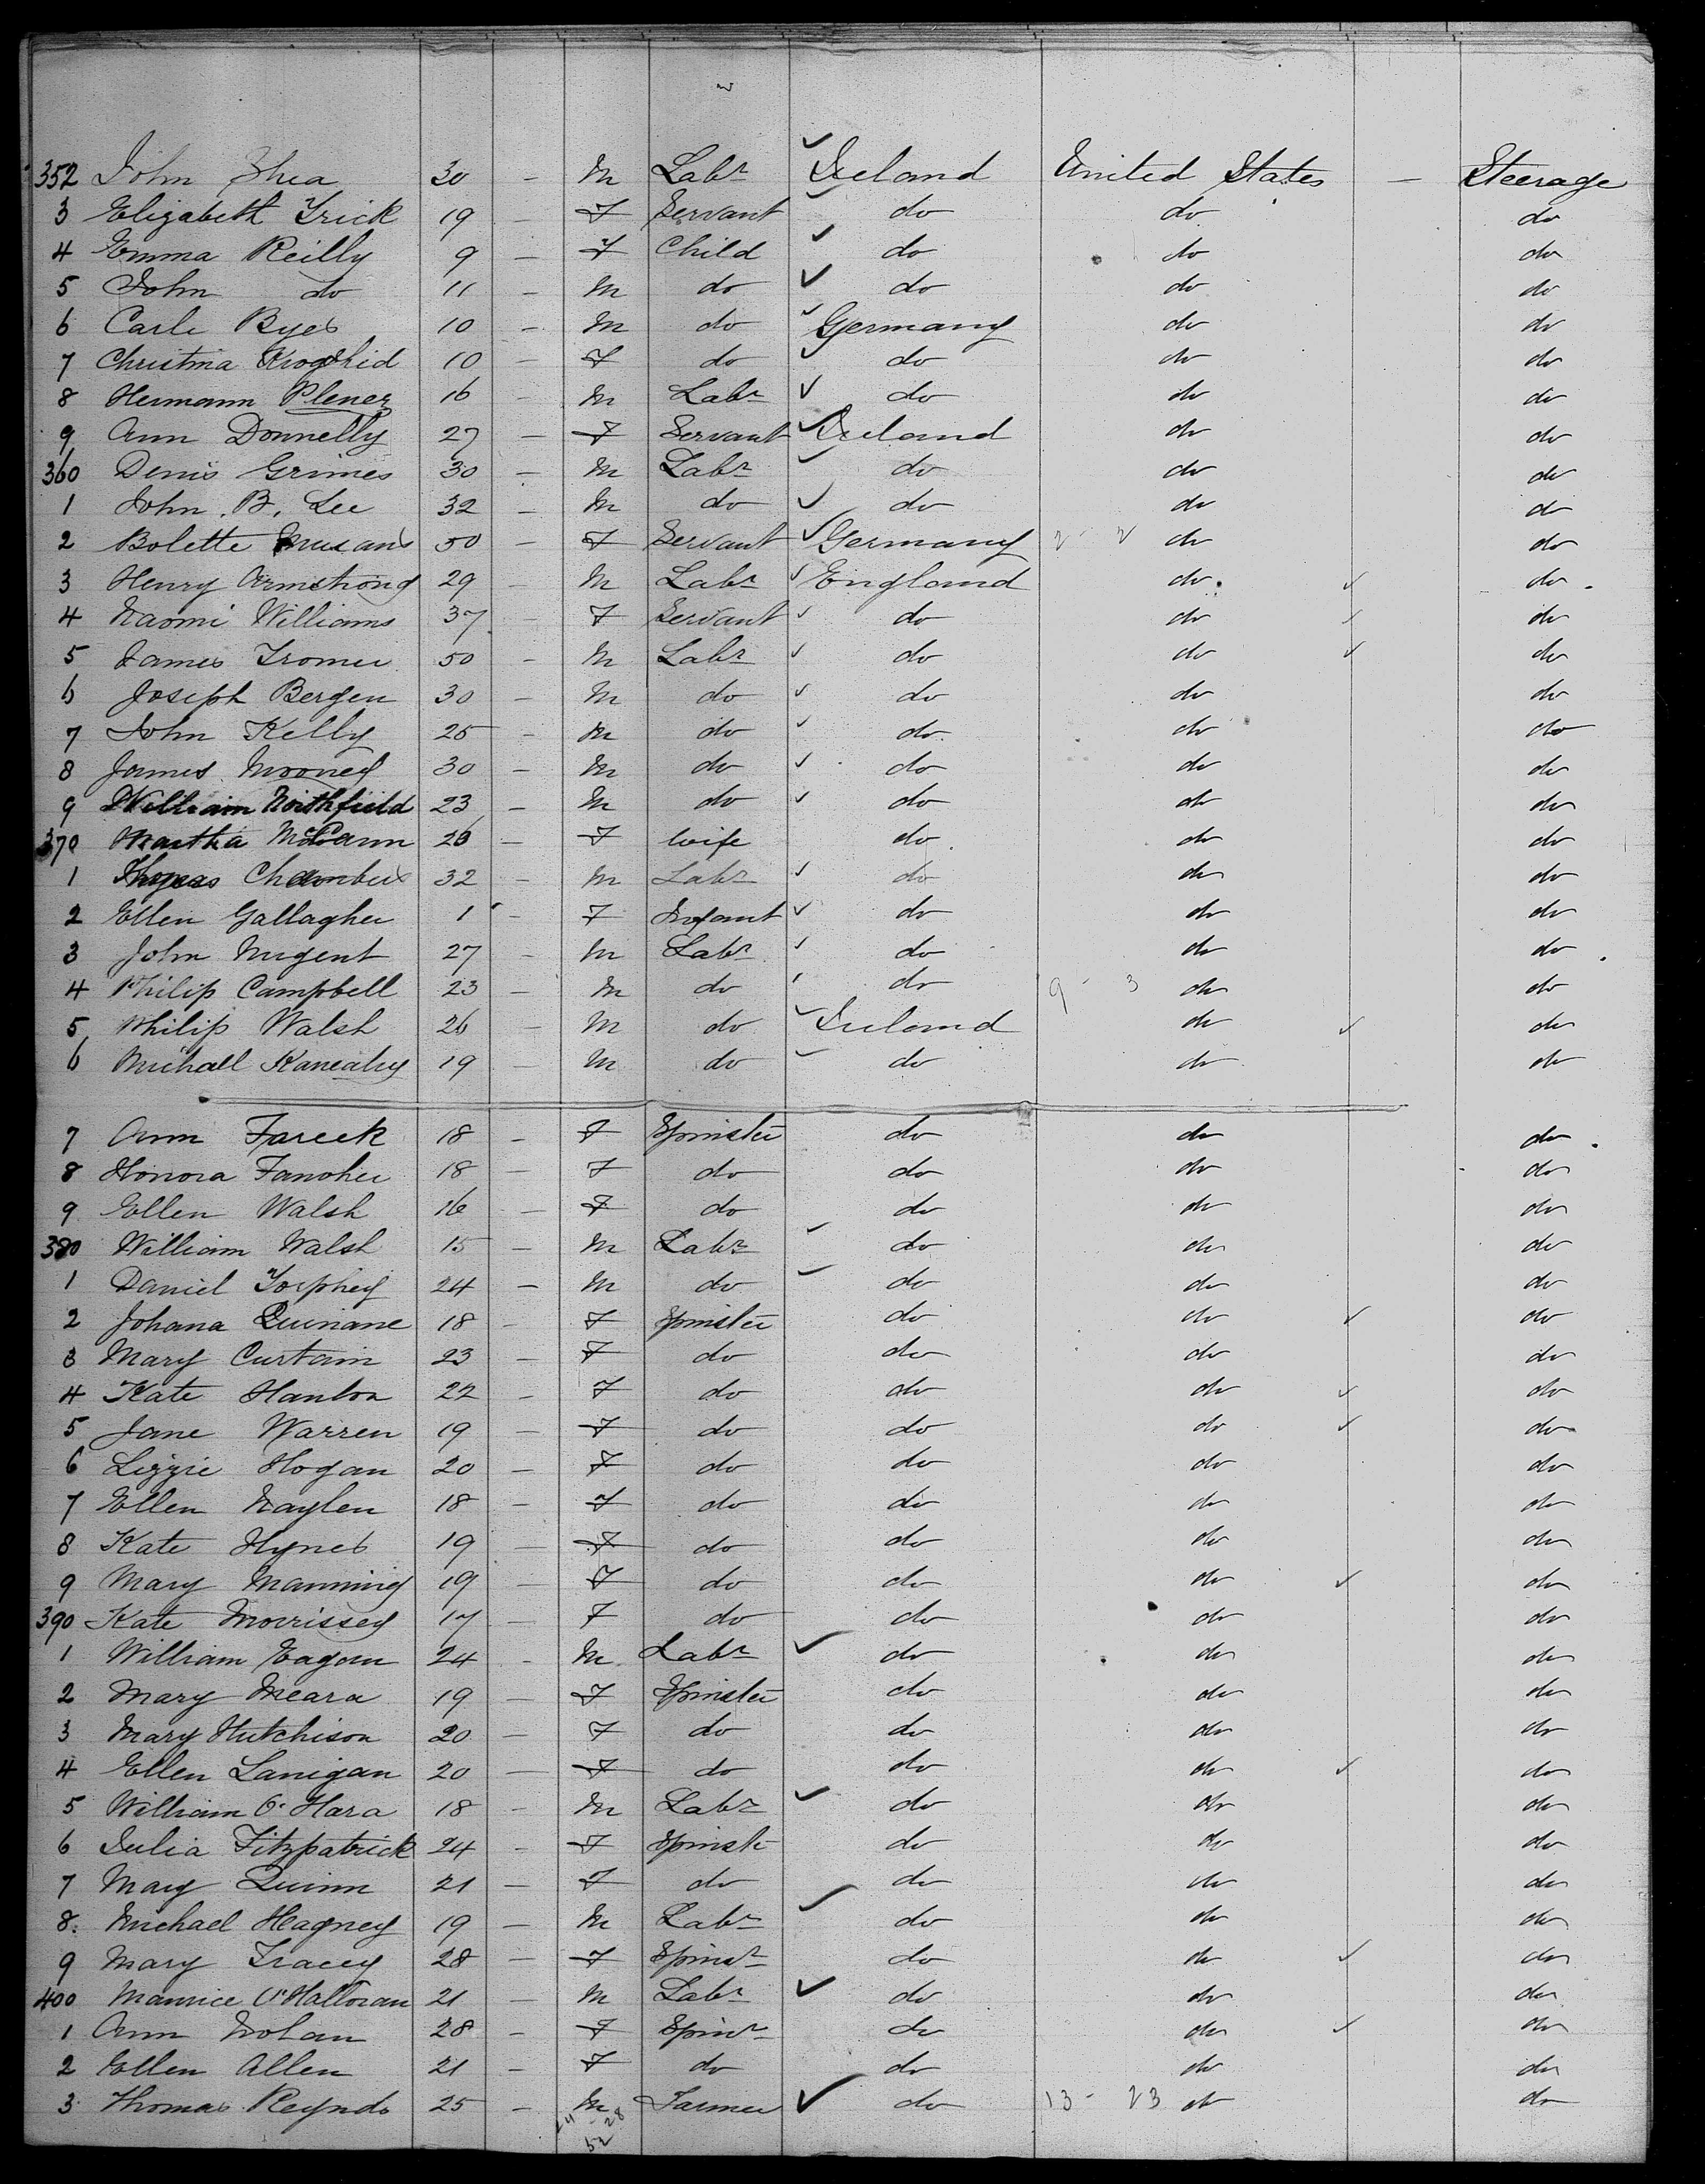 352 John Shea 30 - M Labr Ireland United States - Steerage
3 Elizabeth Frick 19 - F Servant do do do
4 Emma Reilly 9 - F Child do do do
5 John do 11 - M do do do do
6 Carle Byes 10 - M do Germany do do
7 Christina 10 - F do do do do
8 Hermann Plener 16 - M Labr do do do
9 Ann Donnelly 27 - F Servant Ireland do do
360 Denis Grimes 30 - M Labr do do do
1 John B. Lee 32 - M do do do do
2 Bolette 50 - F Servant Germany 2 - 2 do do
3 Henry Armstrong 29 - M Labr England do do
4 Naomi Williams 37 - F Servant do do do
5 James Tromer 50 - M Labr do do do
6 Joseph Bergen 30 - M do do do do
7 John Kelly 25 - M do do do do
8 James Mooney 30 - M do do do do
9 William Northfield 23 - M do do do do
370 Martha McCann 26 - F wife do do do
1 Chambers 32 - M Labr do do do
2 Ellen Gallagher 1 - F Infant do do do
3 John Nugent 27 - M Labr do do do
4 Philip Campbell 23 - M do do 9 - 3 do do
5 Philip Walsh 26 - M do Ireland do do
6 Michall Kanealy 19 - M do do do do
7 Ann Fareek 18 - F Spinster do do do
8 Honora Fanoher 18 - F do do do do
9 Ellen Walsh 16 - F do do do do
380 William Walsh 15 - M Labr do do do
1 Daniel Torphey 24 - M do do do do
2 Johana Quinane 18 - F Spinster do do do
3 Mary Curtain 23 - F do do do do
4 Kate Hanlon 22 - F do do do do
5 Jane Warren 19 - F do do do do
6 Lizzie Hogan 20 - F do do do do
7 Ellen Naylen 18 - F do do do do
8 Kate Hynes 19 - F do do do do
9 Mary Manning 19 - F do do do do
390 Kate Morrissey 17 - F do do do do
1 William Eagan 24 - M Labr do do do
2 Mary Meara 19 - F Spinster do do do
3 Mary Hutchison 20 - F do do do do
4 Ellen Lanigan 20 - F do do do do
5 William O'Hara 18 - M Labr do do do
6 Julia Fitzpatrick 24 - F Spinstr do do do
7 Mary Quinn 21 - F do do do do
8. Michael Heagney 19 - M Labr do do do
9 Mary Tracey 28 - F Spinsr do do do
400 Maurice O'Halloran 21 - M Labr do do do
1 Ann Nolan 28 - F Spinr do do do
2 Ellen Allen 21 - F do do do do
3 Thomas Reynds 25 - M Farmer do 13 - 23 do do
24 - 28
52